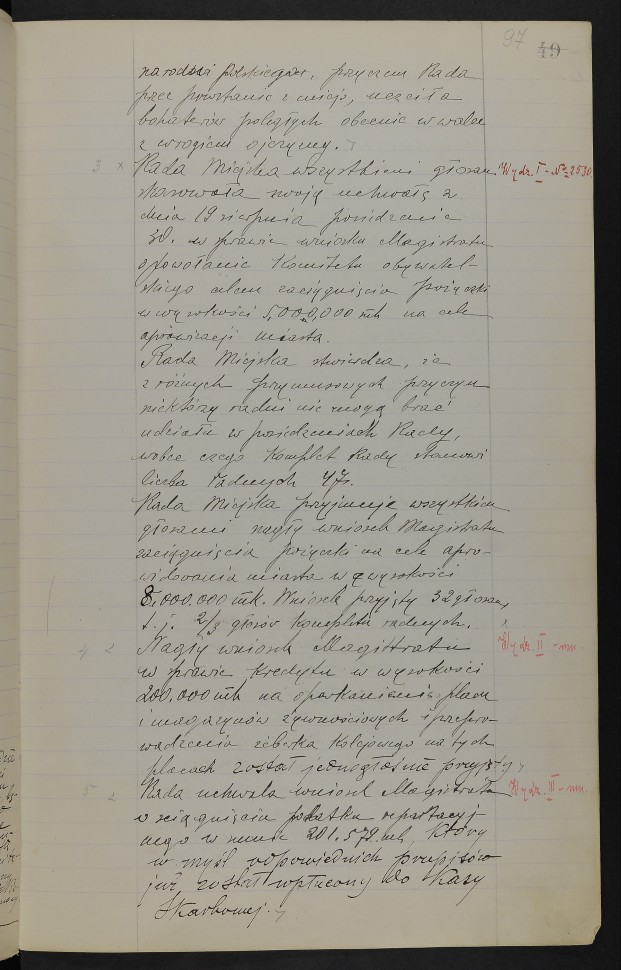 97 49
narodowi polskiemu, przyczem Rada
przez powstanie z miejsc, uczciła
bohaterów poległych obecnie w walce
z wrogiem ojczyzny.
3 x Rada Miejska wszystkiemi głosami Wydz. I - № 2530
skasowała swoją uchwałę z
dnia 19 sierpnia posiedzenie
w sprawie wniosku Magistratu
o powołanie Komitetu obywatel-
skiego celem zaciągnięcia pożyczki
w wysokości 5,000,000 mk na cele
aprowizacji miasta.
Rada Miejska stwierdza, że
z różnych przymusowych przyczyn
niektórzy radni nie mogą brać
udziału w posiedzeniach Rady,
wobec czego komplet Rady stanowi
liczba radnych 47.
Rada Miejska przyjmuje wszystkiemi
głosami nagły wniosek Magistratu
zaciągnięcia pożyczki na cele apro-
widowania miasta w wysokości
8,000.000 mk. Wniosek przyjęty 32 głosami,
t. j. 2/3 głosów kompletu radnych.
4 Nagły wniosek Magistratu Wydz. II - nn.
w sprawie kredytu w wysokości
200,000 mk na oparkanienie placu
i magazynów żywnościowych i przepro-
wadzenia żeberka kolejowego na tych
placach został jednogłośnie przyjęty,
5 Rada uchwala wniosek Magistratu Wydz. III - nn.
o ściągnięciu podatku repartacyj-
nego w sumie 201.579 mk, który
w myśl odpowiednich przepisów
już został wpłacony do Kasy
Skarbowej.